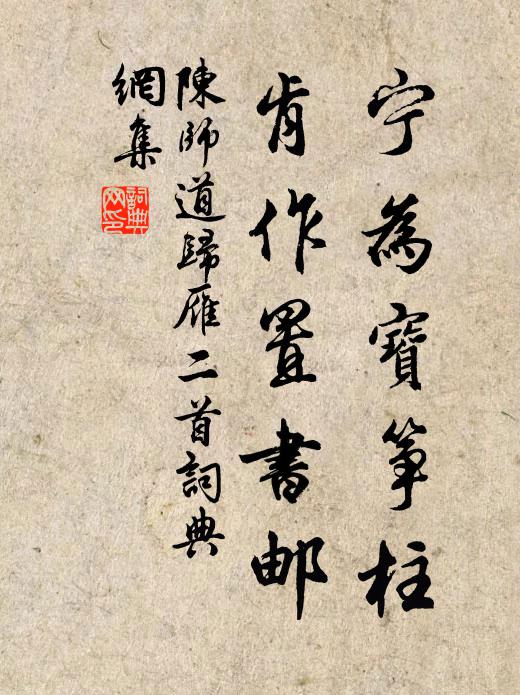 宁為寶筝柱
肯作置書邮
陳師道歸雁二首詞典
網集
詞典
网印